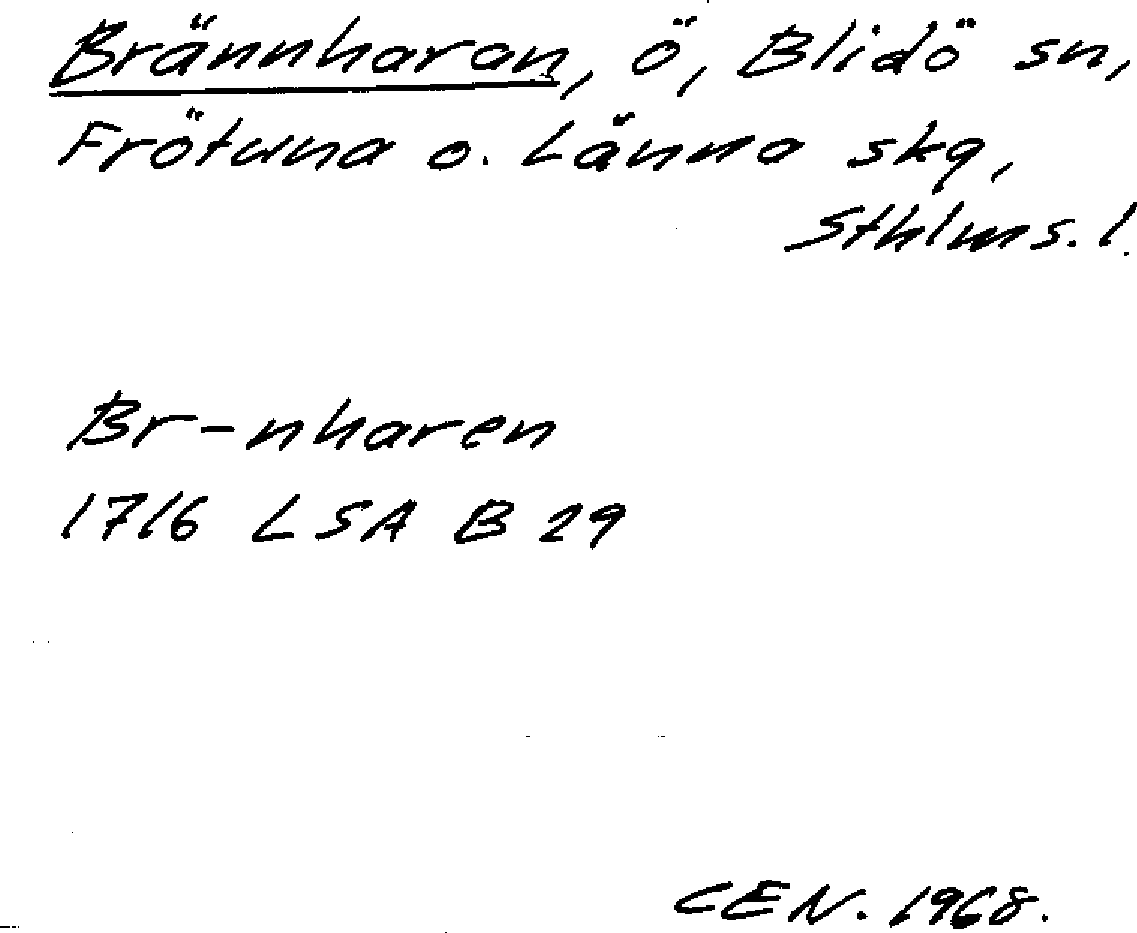 Brännharan, ö, Blidö sn,
Frötuna o. Länna skg,
Sthlms. l.
Br-nharen
1716 LSA B 29
CEN. 1968.